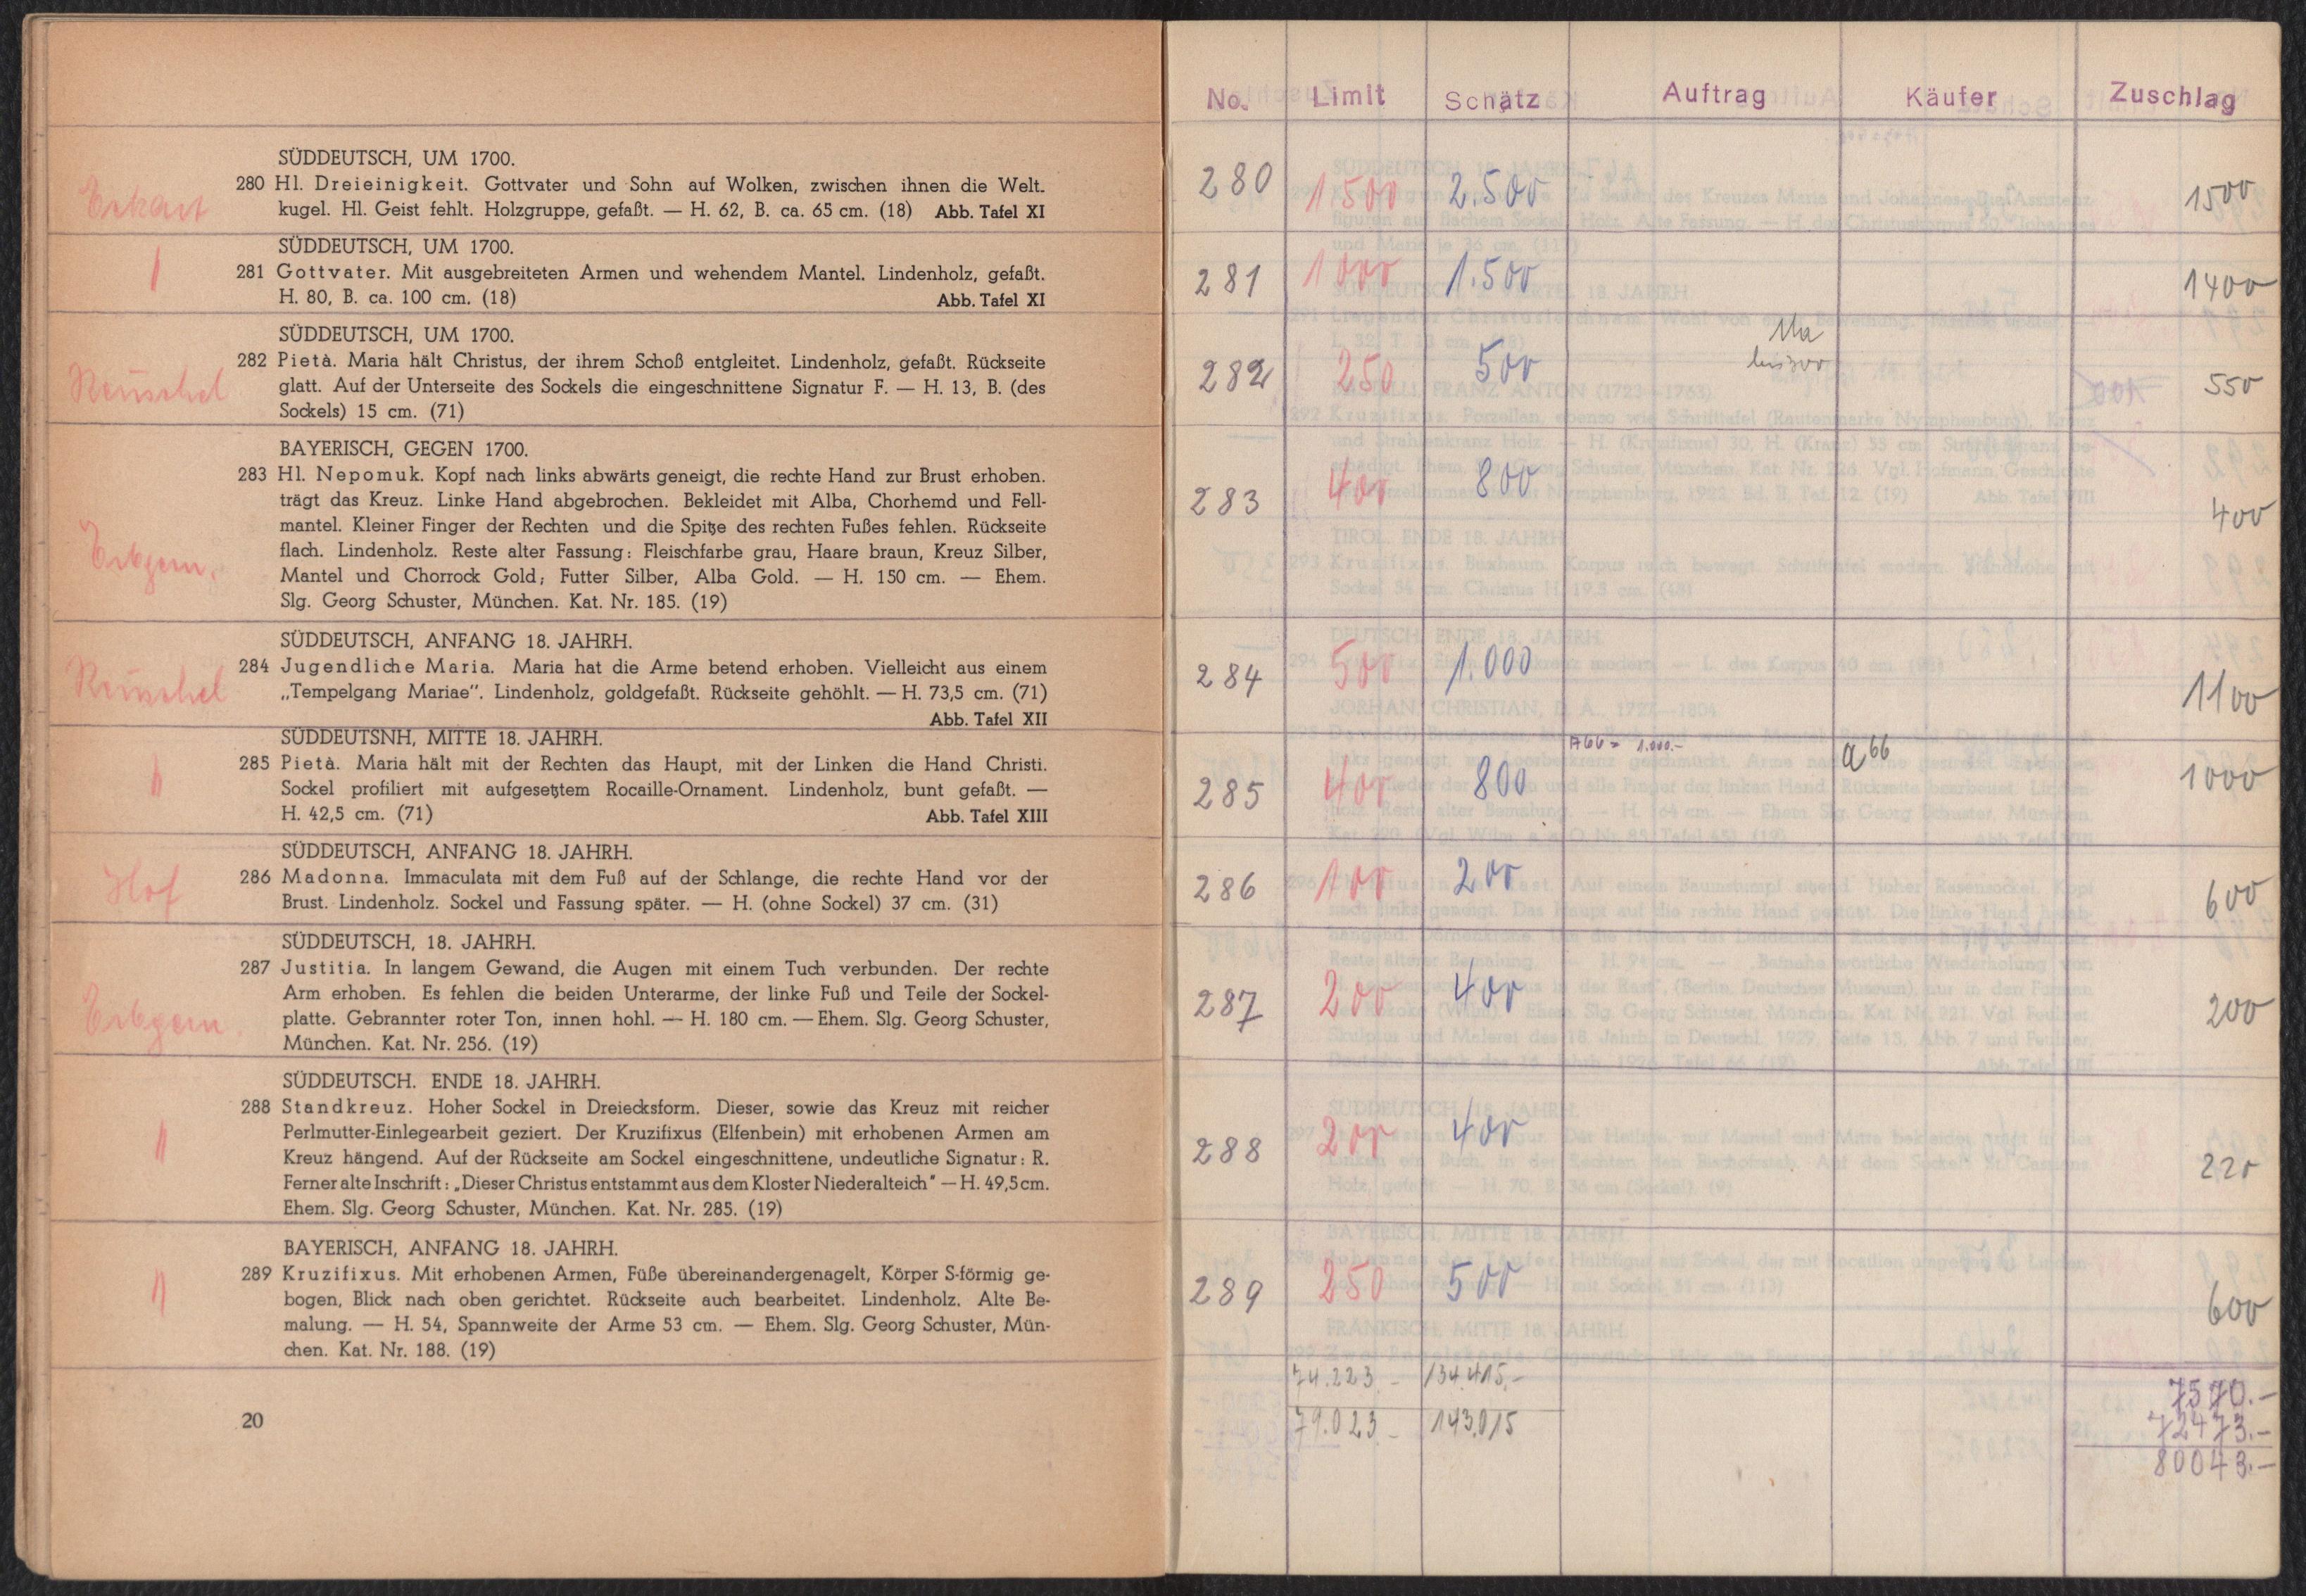 SÜDDEUTSCH, UM 1700.
280 Hl. Dreieinigkeit. Gottvater und Sohn auf Wolken, zwischen ihnen die Welt-
kugel. Hl. Geist fehlt. Holzgruppe, gefaßt. — H. 62, B. ca. 65 cm. (18) Abb. Tafel XI
SÜDDEUTSCH, UM 1700.
281 Gottvater. Mit ausgebreiteten Armen und wehendem Mantel. Lindenholz, gefaßt.
H. 80, B. ca. 100 cm. (18) Abb. Tafel XI
SÜDDEUTSCH, UM 1700.
Reuschel
282 Pietà. Maria hält Christus, der ihrem Schoß entgleitet. Lindenholz, gefaßt. Rückseite
glatt. Auf der Unterseite des Sockels die eingeschnittene Signatur F. — H. 13, B. (des
Sockels) 15 cm. (71)
BAYERISCH, GEGEN 1700.
283 Hl. Nepomuk. Kopf nach links abwärts geneigt, die rechte Hand zur Brust erhoben.
trägt das Kreuz. Linke Hand abgebrochen. Bekleidet mit Alba, Chorhemd und Fell-
mantel. Kleiner Finger der Rechten und die Spitze des rechten Fußes fehlen. Rückseite
flach. Lindenholz. Reste alter Fassung: Fleischfarbe grau, Haare braun, Kreuz Silber,
Mantel und Chorrock Gold; Futter Silber, Alba Gold. — H. 150 cm. — Ehem.
Slg. Georg Schuster, München. Kat. Nr. 185. (19)
Erbgem.
SÜDDEUTSCH, ANFANG 18. JAHRH.
Reuschel
284 Jugendliche Maria. Maria hat die Arme betend erhoben. Vielleicht aus einem
„Tempelgang Mariae". Lindenholz, goldgefaßt. Rückseite gehöhlt. — H. 73,5 cm. (71)
Abb. Tafel XII
SÜDDEUTSNH, MITTE 18. JAHRH.
285 Pietà. Maria hält mit der Rechten das Haupt, mit der Linken die Hand Christi.
Sockel profiliert mit aufgesetztem Rocaille-Ornament. Lindenholz, bunt gefaßt. —
H. 42,5 cm. (71) Abb. Tafel XIII
SÜDDEUTSCH, ANFANG 18. JAHRH.
Hof
286 Madonna. Immaculata mit dem Fuß auf der Schlange, die rechte Hand vor der
Brust. Lindenholz. Sockel und Fassung später. — H. (ohne Sockel) 37 cm. (31)
SÜDDEUTSCH, 18. JAHRH.
287 Justitia. In langem Gewand, die Augen mit einem Tuch verbunden. Der rechte
Arm erhoben. Es fehlen die beiden Unterarme, der linke Fuß und Teile der Sockel-
platte. Gebrannter roter Ton, innen hohl. — H. 180 cm. — Ehem. Slg. Georg Schuster,
München. Kat. Nr. 256. (19)
Erbgem.
SÜDDEUTSCH. ENDE 18. JAHRH.
288 Standkreuz. Hoher Sockel in Dreiecksform. Dieser, sowie das Kreuz mit reicher
Perlmutter-Einlegearbeit geziert. Der Kruzifixus (Elfenbein) mit erhobenen Armen am
Kreuz hängend. Auf der Rückseite am Sockel eingeschnittene, undeutliche Signatur: R.
Ferner alte Inschrift: „Dieser Christus entstammt aus dem Kloster Niederalteich" — H. 49,5 cm.
Ehem. Slg. Georg Schuster, München. Kat. Nr. 285. (19)
BAYERISCH, ANFANG 18. JAHRH.
289 Kruzifixus. Mit erhobenen Armen, Füße übereinandergenagelt, Körper S-förmig ge-
bogen, Blick nach oben gerichtet. Rückseite auch bearbeitet. Lindenholz. Alte Be-
malung. — H. 54, Spannweite der Arme 53 cm. — Ehem. Slg. Georg Schuster, Mün-
chen. Kat. Nr. 188. (19)
20
No. Limit Schätz Auftrag Käufer Zuschlag
280 1500 2.500 1500
281 1000 1.500 1400
282 250 500 550
283 400 800 400
284 500 1.000 1100
285 400 800 A66 = 1.000.- a 66 1000
286 100 200 600
287 200 400 200
288 200 400 220
289 250 500 600
74.223.- 134.415.- 7570.-
79.023.- 143.015 72473.-
80043.-